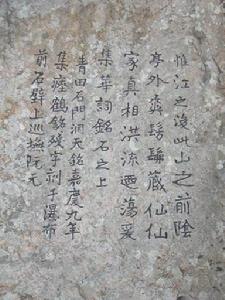 惟江之此山之前陰
亭外藏仙仙
家真相洪流蕩爰
集華詞銘石之上
青田石門洞天銘嘉慶九年
集瘞鶴銘字于瀑布
前石壁上巡撫阮元